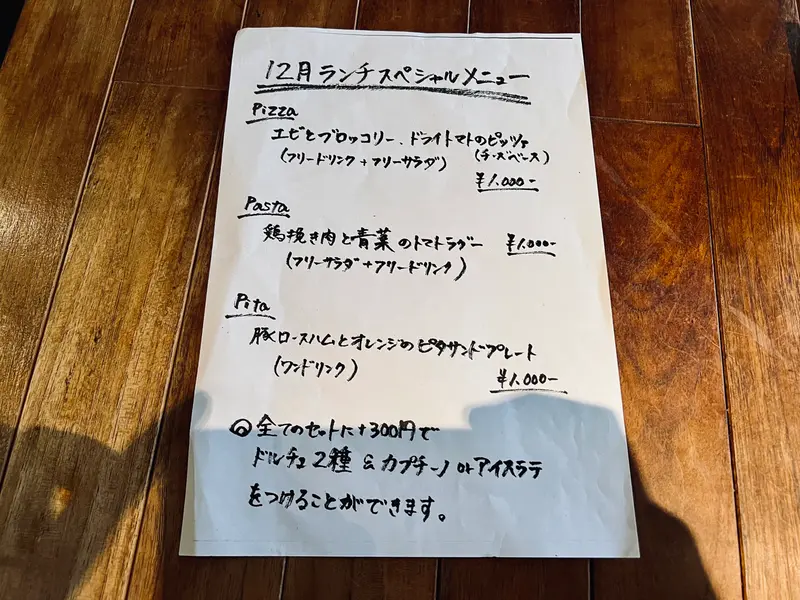 12月ランチスペシャルメニュー
Pizza
エビとブロッコリー、ドライトマトのピッツァ
(フリードリンク+フリーサラダ) (チーズベース)
¥1.000-
Pasta
鶏挽き肉と青菜のトマトラグー ¥1.000-
(フリーサラダ+フリードリンク)
Pita
豚ロースハムとオレンジのピタサンドプレート
(ワンドリンク)
¥1.000-
◎全てのセットに+300円で
ドルチェ2種 & カプチーノ or アイスラテ
をつけることができます。